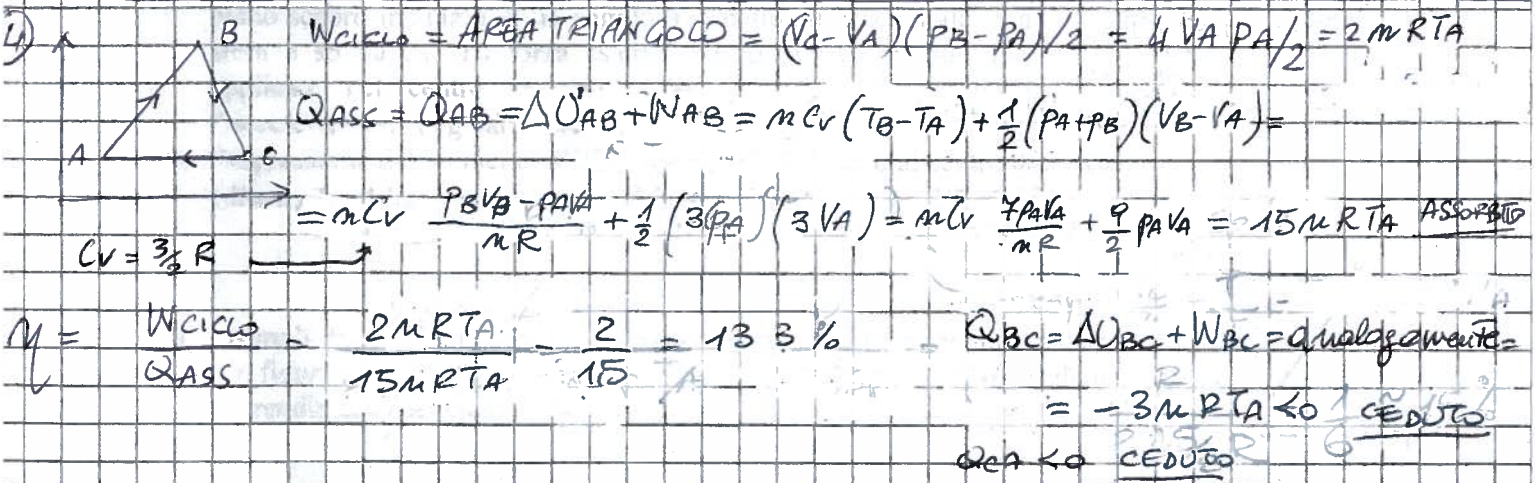 4) B Wciclo = AREA TRIANGOLO = (Vc - VA)(PB - PA)/2 = 4 VA PA/2 = 2 n R TA
QASS = QAB = ΔUAB + WAB = n Cv (TB - TA) + 1/2 (PA + PB)(VB - VA) =
A C
= n Cv (PBVB - PAVA)/(nR) + 1/2 (3 PA)(3 VA) = n Cv 7PAVA/(nR) + 9/2 PAVA = 15 n R TA ASSORBITO
Cv = 3/2 R
η = Wciclo/QASS = 2nRTA/15nRTA = 2/15 = 13 3 % QBC = ΔUBC + WBC = analogamente =
= - 3 n R TA < 0 CEDUTO
QCA < 0 CEDUTO